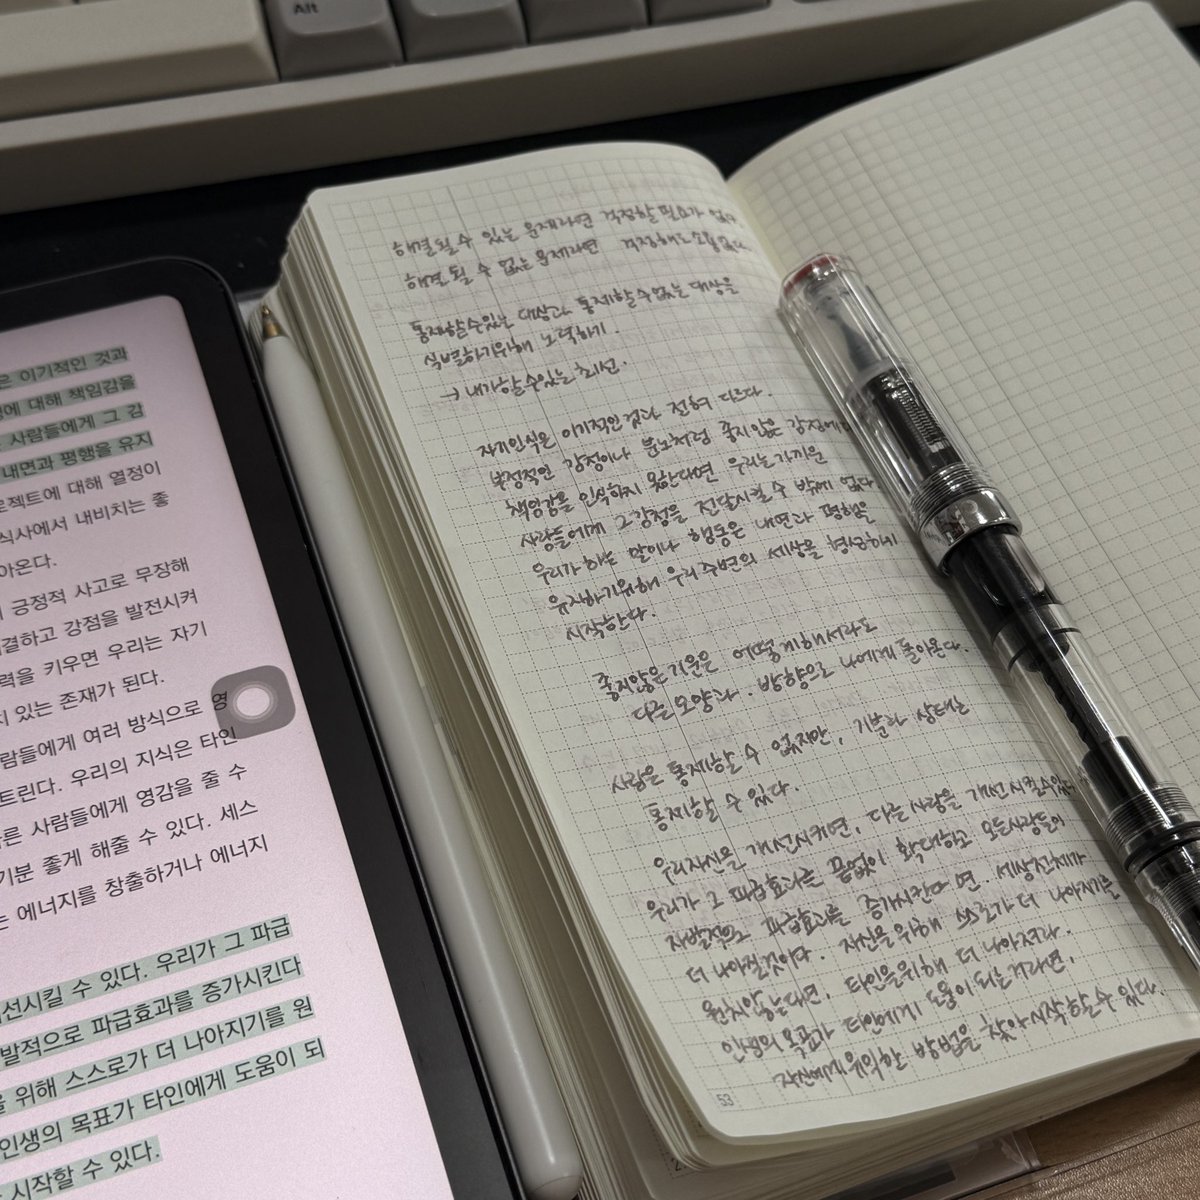 Alt
은 이기적인 것과
에 대해 책임감을
사람들에게 그 감
내면과 평행을 유지
로젝트에 대해 열정이
식사에서 내비치는 좋
아온다.
긍정적 사고로 무장해
결하고 강점을 발전시켜
력을 키우면 우리는 자기
있는 존재가 된다.
람들에게 여러 방식으로 영
트린다. 우리의 지식은 타인
른 사람들에게 영감을 줄 수
기분 좋게 해줄 수 있다. 세스
는 에너지를 창출하거나 에너지
선시킬 수 있다. 우리가 그 파급
발적으로 파급효과를 증가시킨다
을 위해 스스로가 더 나아지기를 원
인생의 목표가 타인에게 도움이 되
시작할 수 있다.
해결될 수 있는 문제라면 걱정할 필요가 없
해결 될 수 없는 문제라면 걱정해도 소용없다
통제할수있는 대상과 통제할수없는 대상을
식별하기위해 노력하기.
→ 내가할수있는 최선.
자기인식은 이기적인 것과 전혀 다르다.
부정적인 감정이나 분노처럼 좋지않은 감정에
책임감을 인식하지 못한다면 우리는 가까운
사람들에게 그 감정을 전달시킬 수 밖에 없다
우리가 하는 말이나 행동은 내면과 평행을
유지하기위해 우리 주변의 세상을 형성하기
시작한다.
좋지않은 기운은 어떻게해서라도
다른 모양과. 방향으로 나에게 돌아온다.
사람은 통제할 수 없지만, 기분과 상태는
통제할 수 있다.
우리자신을 개선시키면, 다른 사람을 개선시킬수있
우리가 그 파급효과를 끝없이 확대하고 모든사람들이
자발적으로 파급효과를 증가시킨다면 세상전체가
더 나아질것이다. 자신을위해 스스로가 더 나아지기를
원치 않는다면, 타인을위해 더 나아져라.
인생의 목표가 타인에게 도움이 되는 거라면,
자신에게 유익한 방법을 찾아 시작할 수 있다.
53